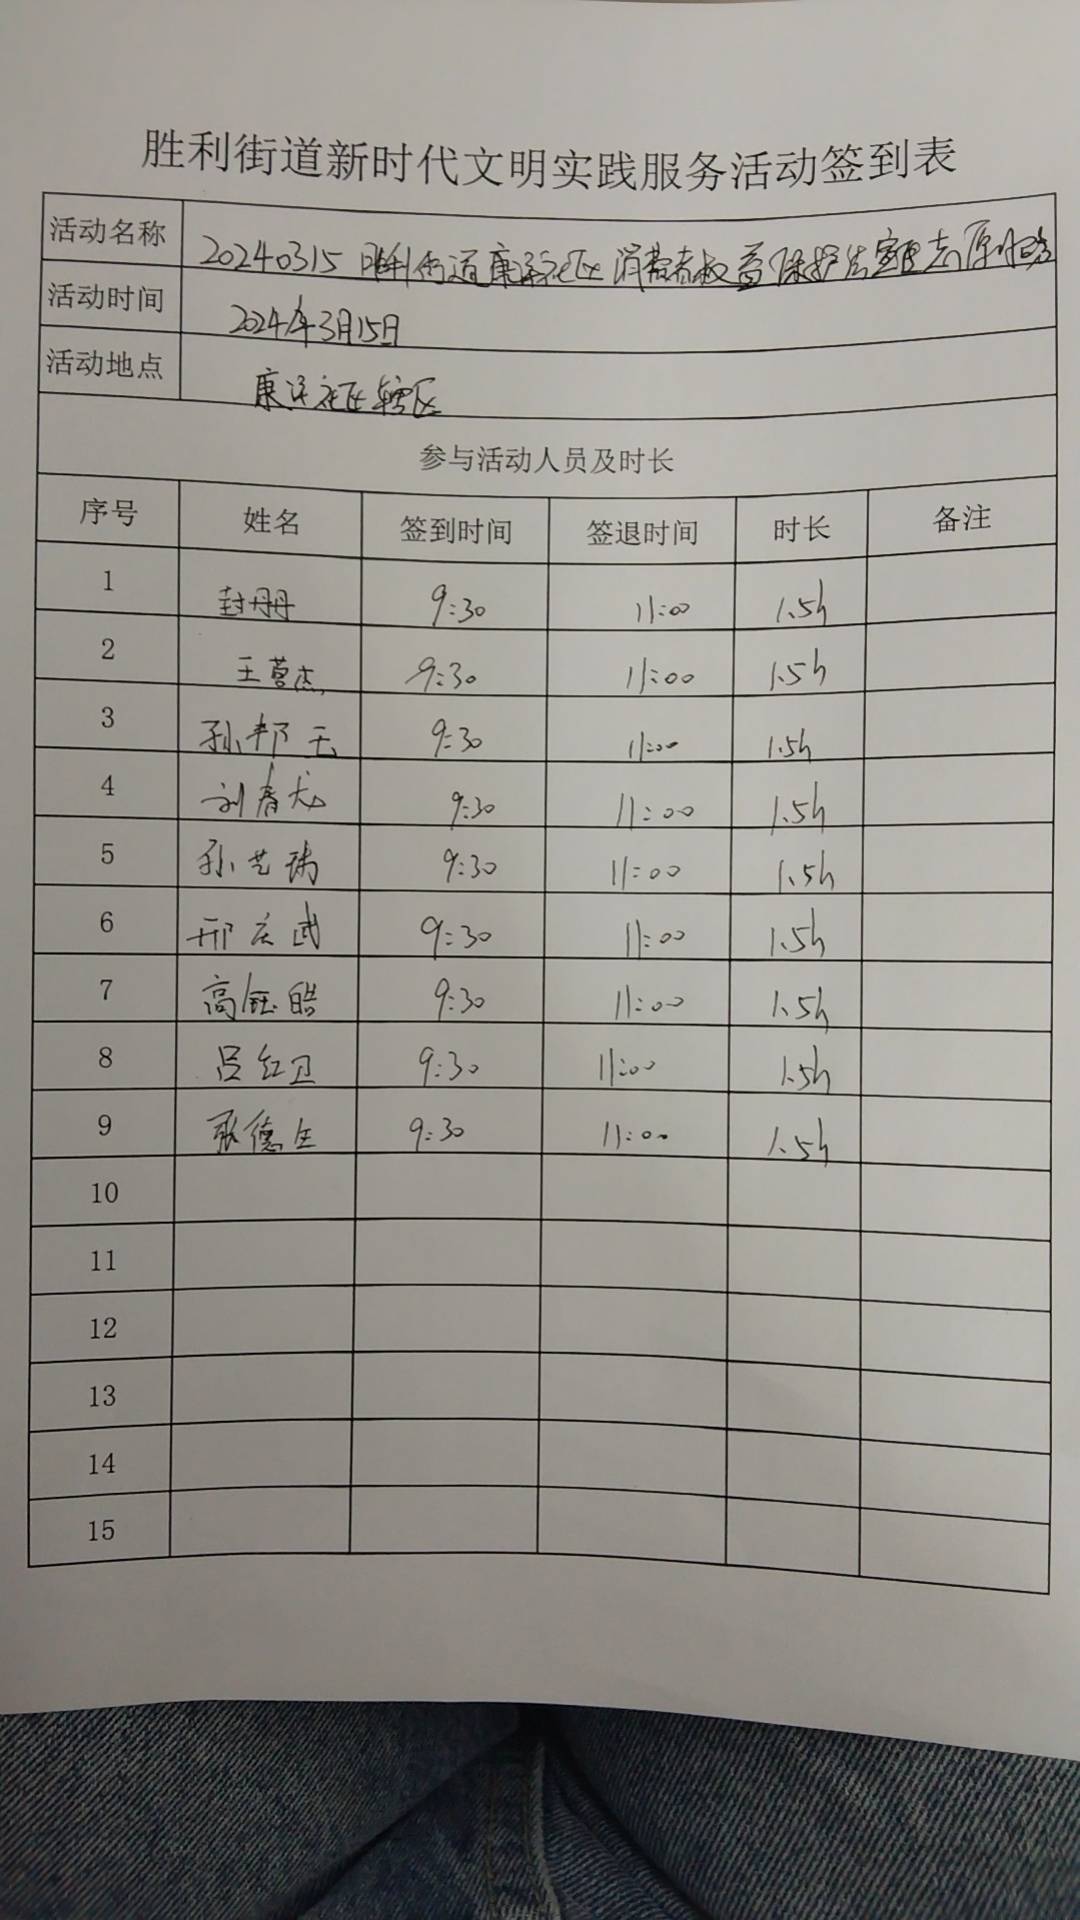 胜利街道新时代文明实践服务活动签到表
活动名称 20240315 胜利街道康泽社区消费者权益保护法宣 志愿服务
活动时间 2024年3月15日
活动地点 康泽社区辖区
参与活动人员及时长
序号 姓名 签到时间 签退时间 时长 备注
1 封丹丹 9:30 11:00 1.5h
2 王 杰 9:30 11:00 1.5h
3 孙邦 9:30 11:00 1.5h
4 刘春龙 9:30 11:00 1.5h
5 孙艺瑞 9:30 11:00 1.5h
6 邢庆武 9:30 11:00 1.5h
7 高钰皓 9:30 11:00 1.5h
8 吕红卫 9:30 11:00 1.5h
9 张德生 9:30 11:00 1.5h
10
11
12
13
14
15